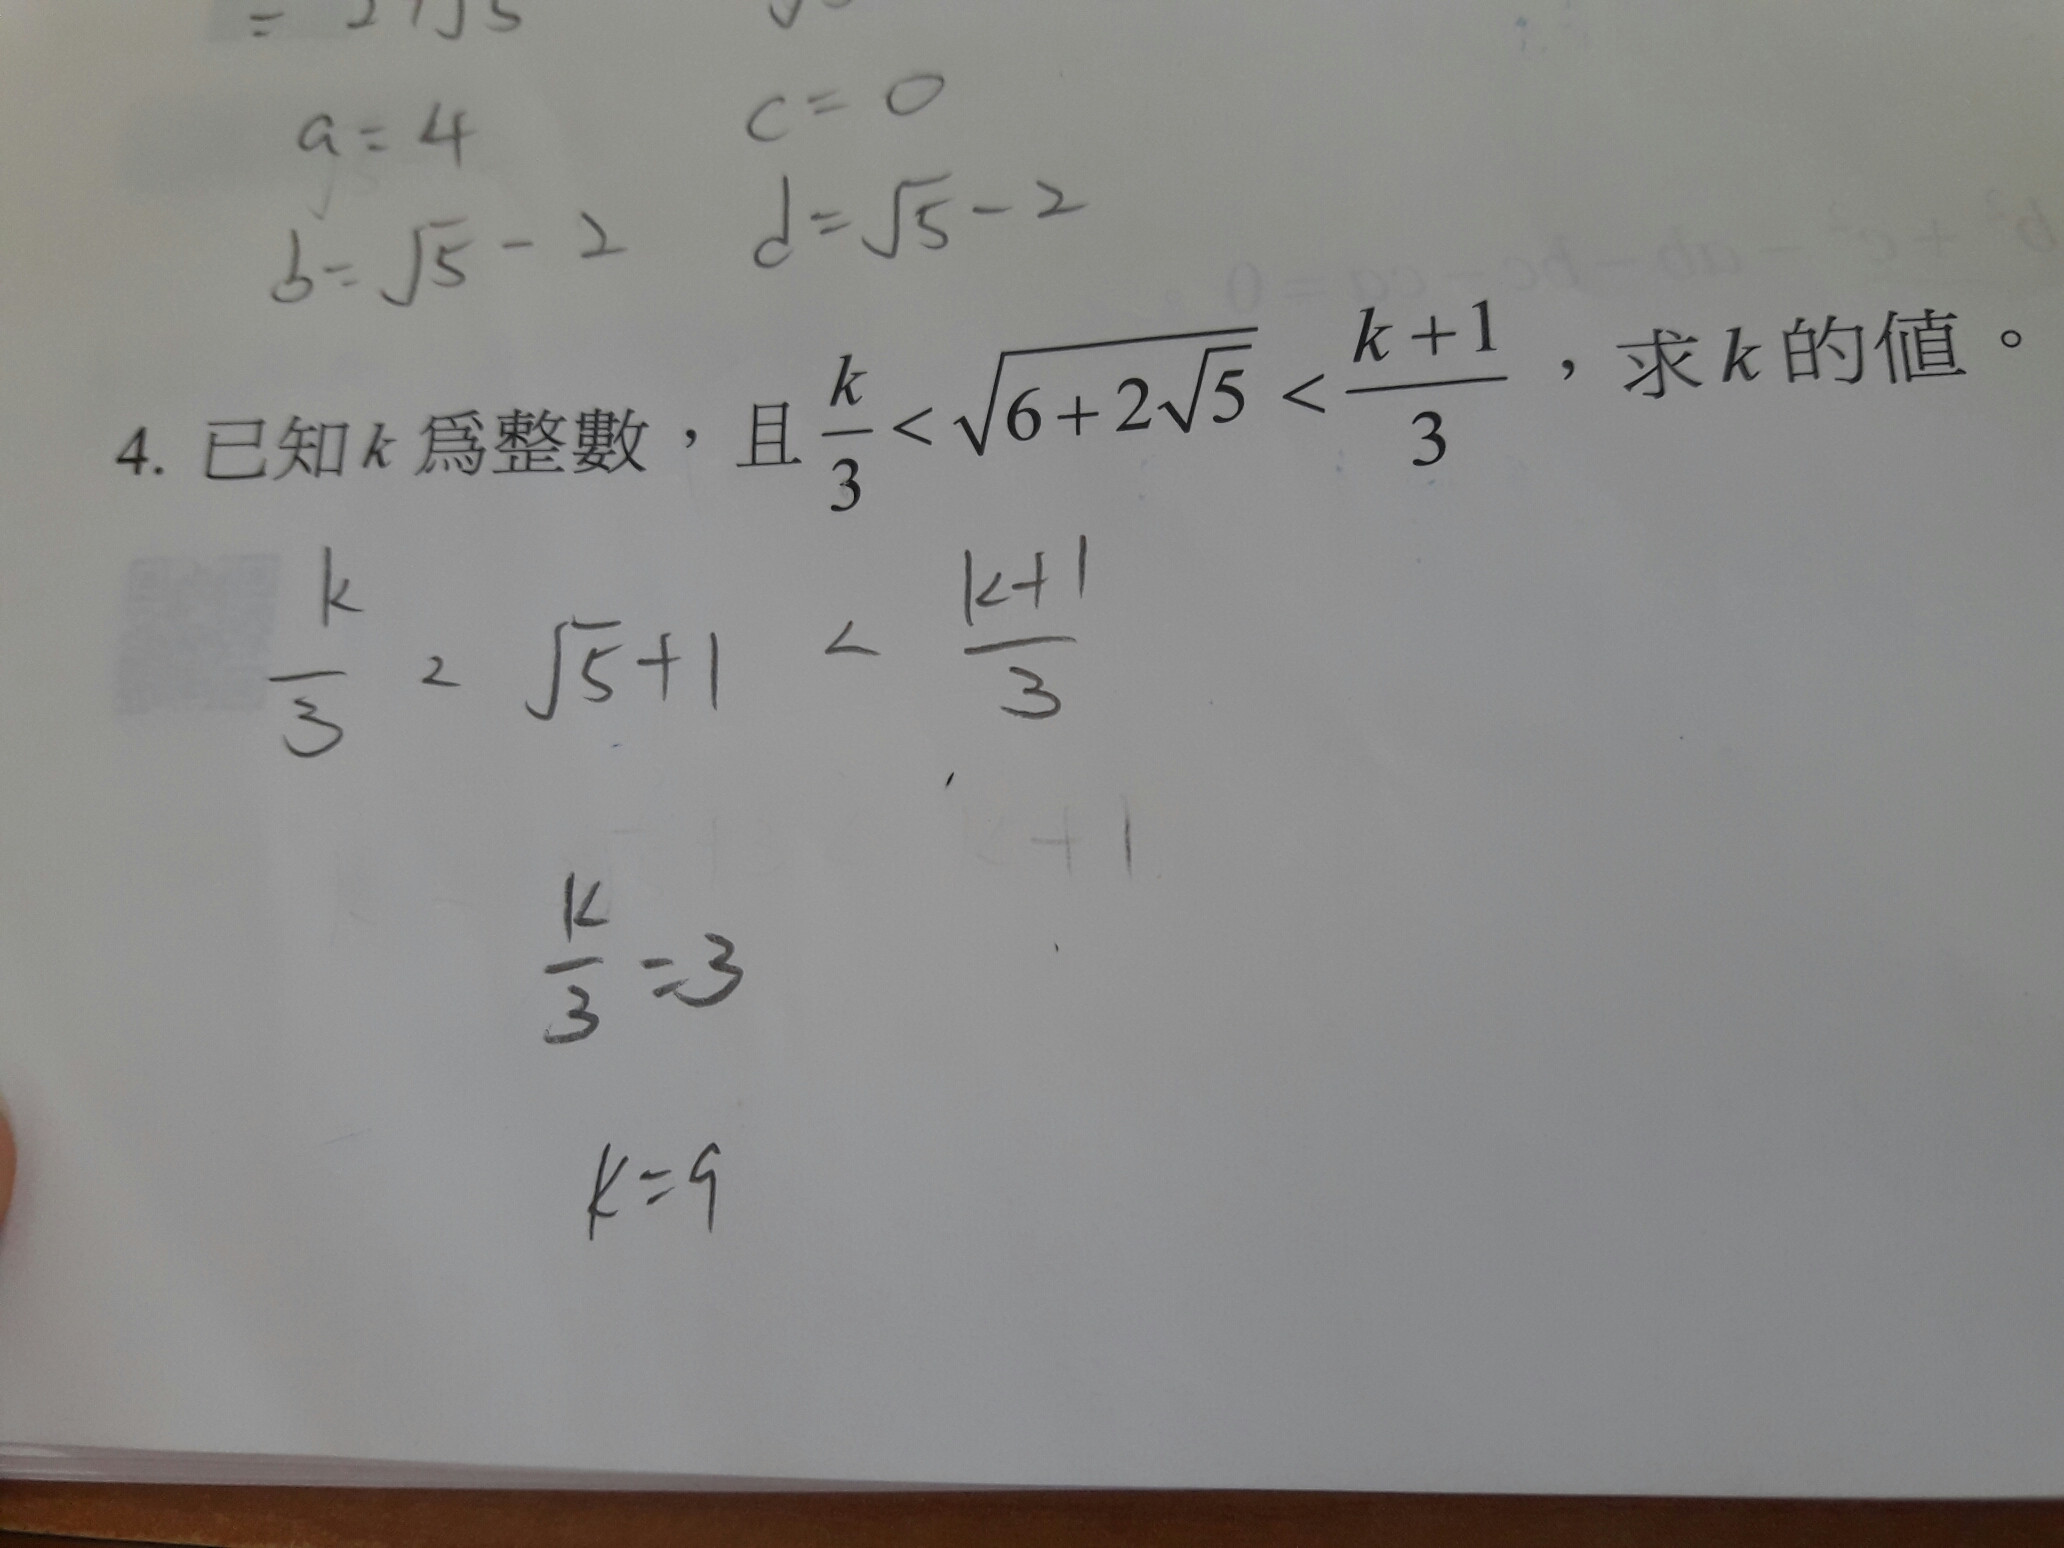 a = 4 c = 0
b = √5 - 2 d = √5 - 2
4. 已知 k 為整數，且 k/3 < √(6+2√5) < (k+1)/3，求 k 的值。
k/3 < √5+1 < (k+1)/3
k/3 = 3
k = 9